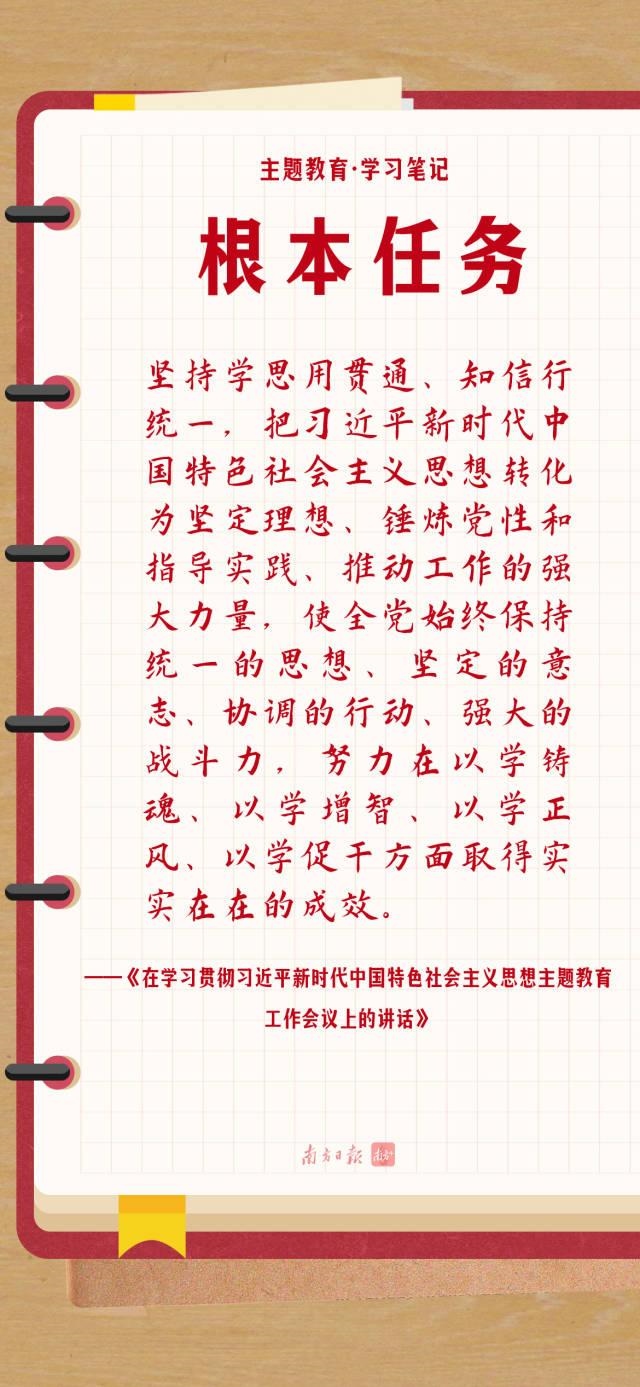 主题教育·学习笔记
根本任务
坚持学思用贯通、知信行
统一，把习近平新时代中
国特色社会主义思想转化
为坚定理想、锤炼党性和
指导实践、推动工作的强
大力量，使全党始终保持
统一的思想、坚定的意
志、协调的行动、强大的
战斗力，努力在以学铸
魂、以学增智、以学正
风、以学促干方面取得实
实在在的成效。
——《在学习贯彻习近平新时代中国特色社会主义思想主题教育
工作会议上的讲话》
南方日报 南方+